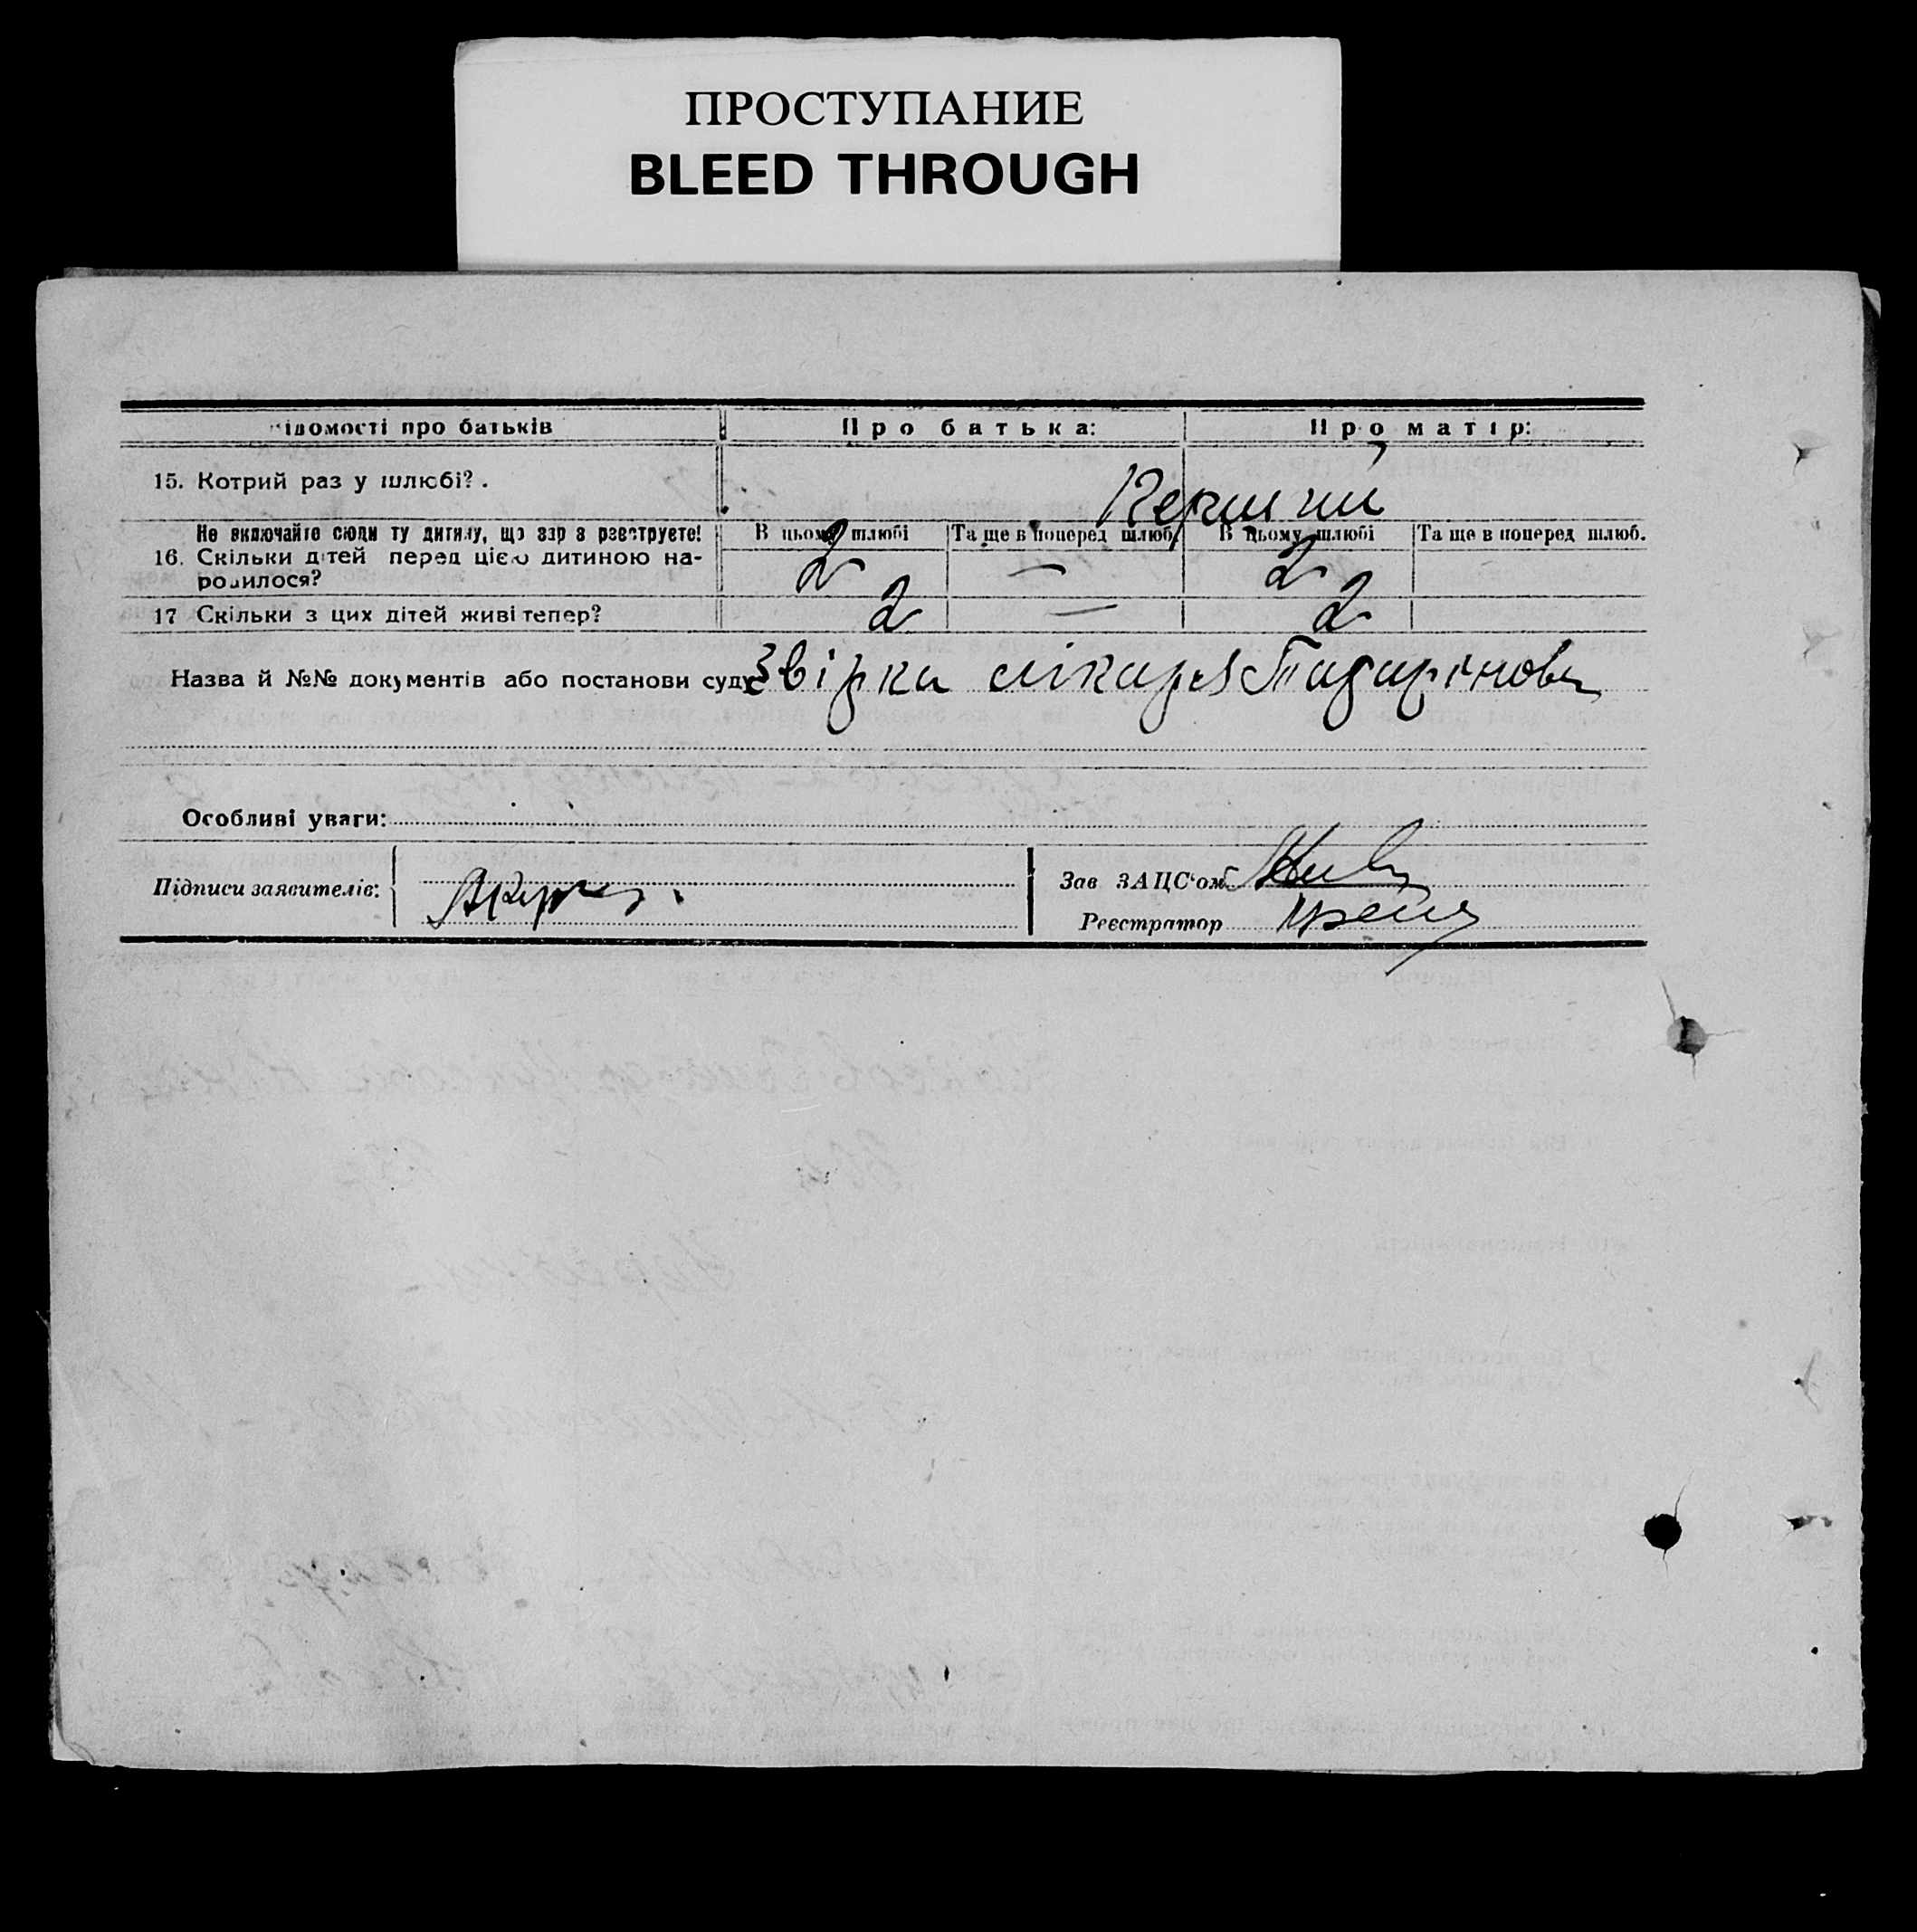 ПРОСТУПАНИЕ
BLEED THROUGH
ідомості про батьків
Про батька:
Про матір:
15. Котрий раз у шлюбі?.
Перший
Не включайте сюди ту дитину, що зар з реєструєте!
В цьому шлюбі
Та ще в поперед шлюб.
В цьому шлюбі
Та ще в поперед шлюб.
16. Скільки дітей перед цією дитиною на-
родилося?
2 — 2
17 Скільки з цих дітей живі тепер?
2 — 2
Назва й №№ документів або постанови суду Звірка лікаря
Особливі уваги:
Підписи заявителів:
Зав ЗАЦС'ом
Реєстратор